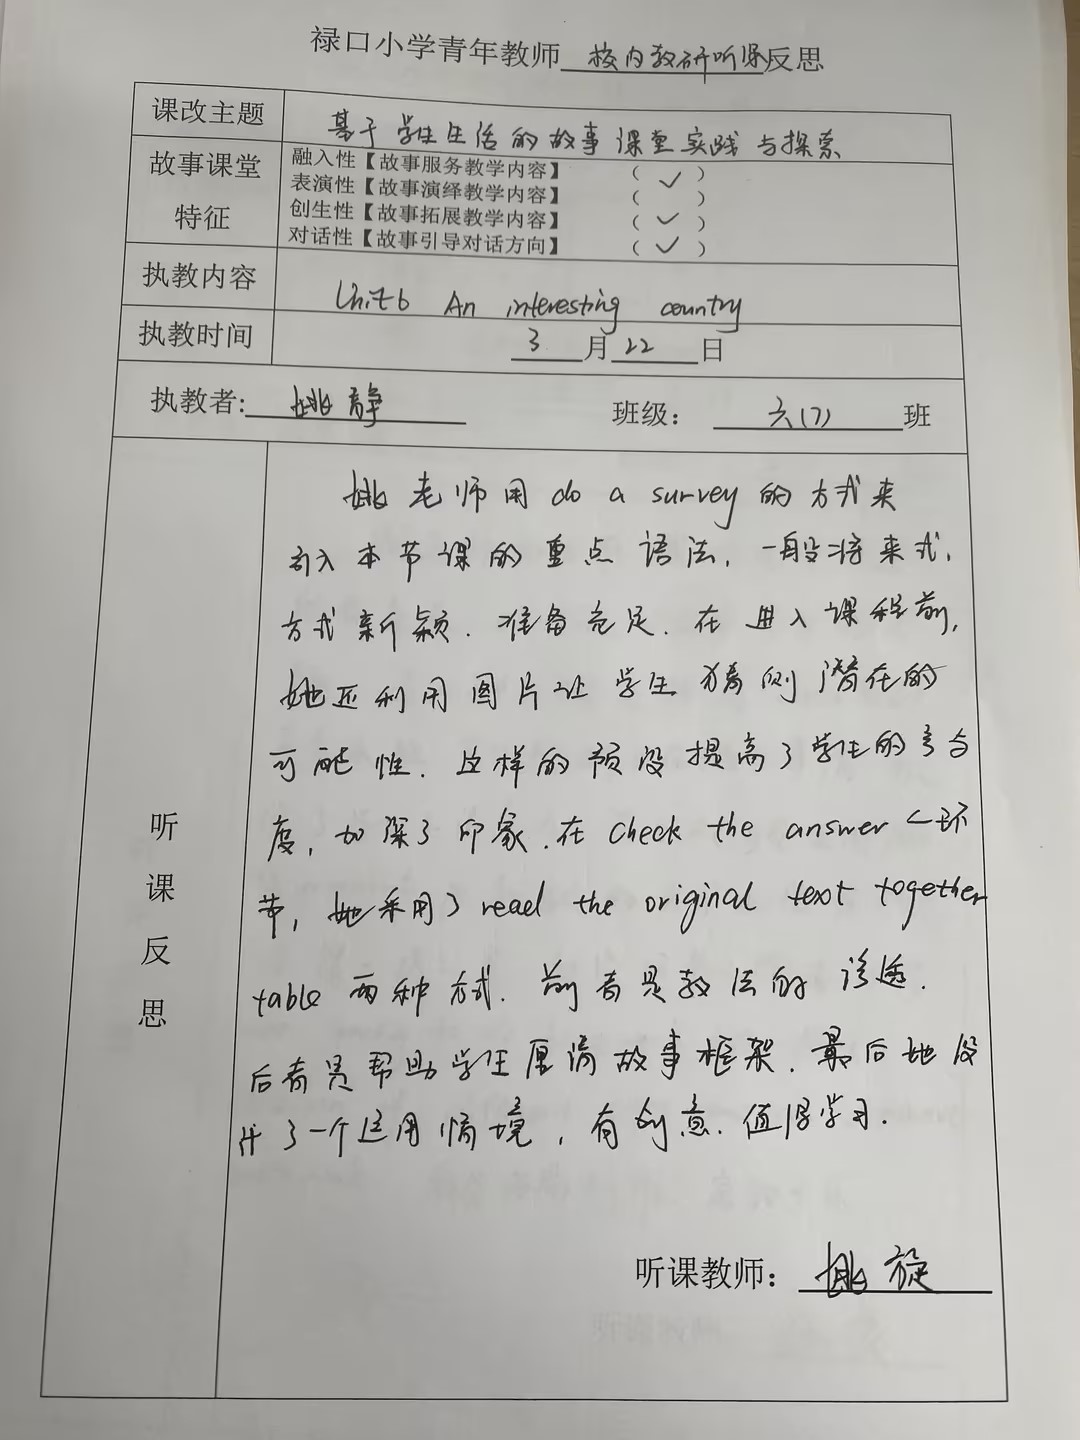 禄口小学青年教师校内教研听课反思
课改主题 基于学生生活的故事课堂实践与探索
故事课堂特征
融入性【故事服务教学内容】 （ ✓ ）
表演性【故事演绎教学内容】 （ ）
创生性【故事拓展教学内容】 （ ✓ ）
对话性【故事引导对话方向】 （ ✓ ）
执教内容 Unit6 An interesting country
执教时间 3月22日
执教者: 姚静 班级： 六(7)班
听课反思
姚老师用 do a survey 的方式来
引入本节课的重点语法，一般将来式，
方式新颖．准备充足．在进入课程前，
她还利用图片让学生猜测潜在的
可能性．这样的预设提高了学生的参与
度，加深了印象．在 check the answer 这一环
节，她采用了 read the original text together
table 两种方式．前者是教法的渗透．
后者是帮助学生厘清故事框架．最后她设
计了一个运用情境，有创意．值得学习．
听课教师： 姚旋